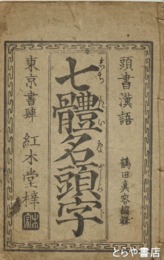 頭書漢語
鶴田真容編輯
七體名頭字
東京書肆 紅木堂梓
とらや書店